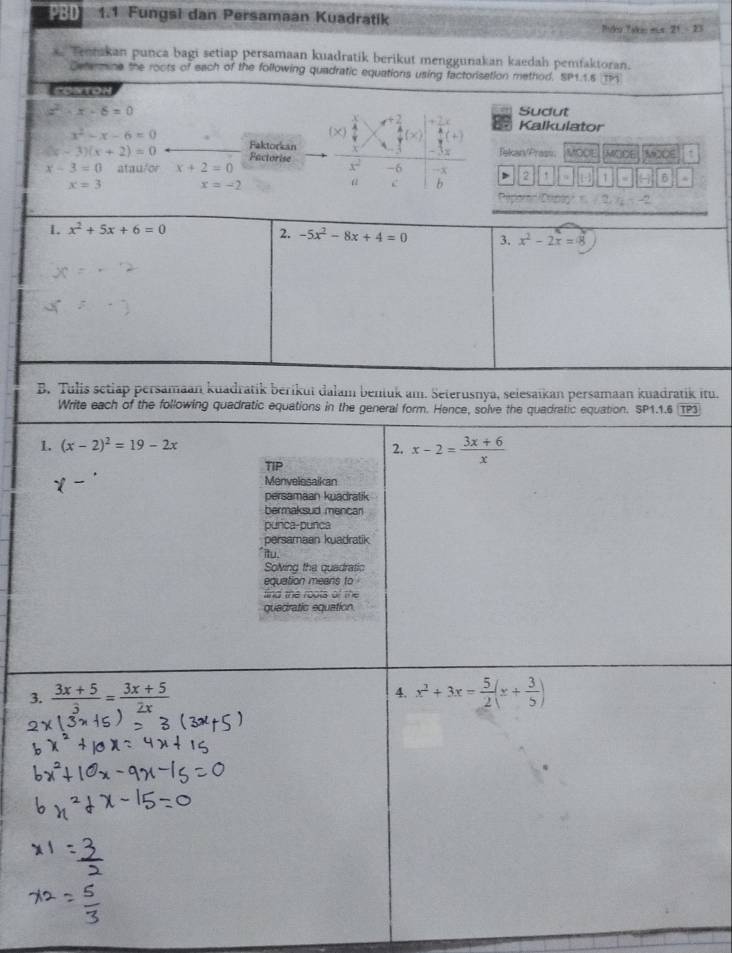 PBD 1.1 Fungsi dan Persamaan Kuadratik
21 - 23
Tentukan punca bagi setiap persamaan kuadratik berikut menggunakan kaedah pemfaktoran.
Determine the roots of each of the following quadratic equations using factorisation method. SP1.1.6 TP1
CONTOH
x² - x - 6 = 0
x² - x - 6 = 0
(x - 3)(x + 2) = 0
x - 3 = 0 atau/or x + 2 = 0
x = 3 x = -2
Faktorkan
Factorise
(×) x +2 (×) +2x (+)
x -3 -3x
x² -6 -x
a c b
Sudut
Kalkulator
Tekan/Press: MODE MODE MODE 1
▶ 2 1 = (-) 1 = (-) 6 =
1. x² + 5x + 6 = 0
x = - 2
x = - 3
2. -5x² - 8x + 4 = 0
3. x² - 2x = 8
B. Tulis setiap persamaan kuadratik berikut dalam bentuk am. Seterusnya, selesaikan persamaan kuadratik itu.
Write each of the following quadratic equations in the general form. Hence, solve the quadratic equation. SP1.1.6 TP3
1. (x - 2)² = 19 - 2x
x -
TIP
Menyelesaikan
persamaan kuadratik
bermaksud mencari
punca-punca
persamaan kuadratik
itu.
Solving the quadratic
equation means to
find the roots of the
quadratic equation.
2. x - 2 = (3x + 6)/x
3. (3x + 5)/3 = (3x + 5)/2x
2x(3x+5) = 3(3x+5)
6x² + 10x = 9x + 15
6x² + 10x - 9x - 15 = 0
6x² + x - 15 = 0
x1 = 3/2
x2 = 5/3
4. x² + 3x = 5/2(x + 3/5)